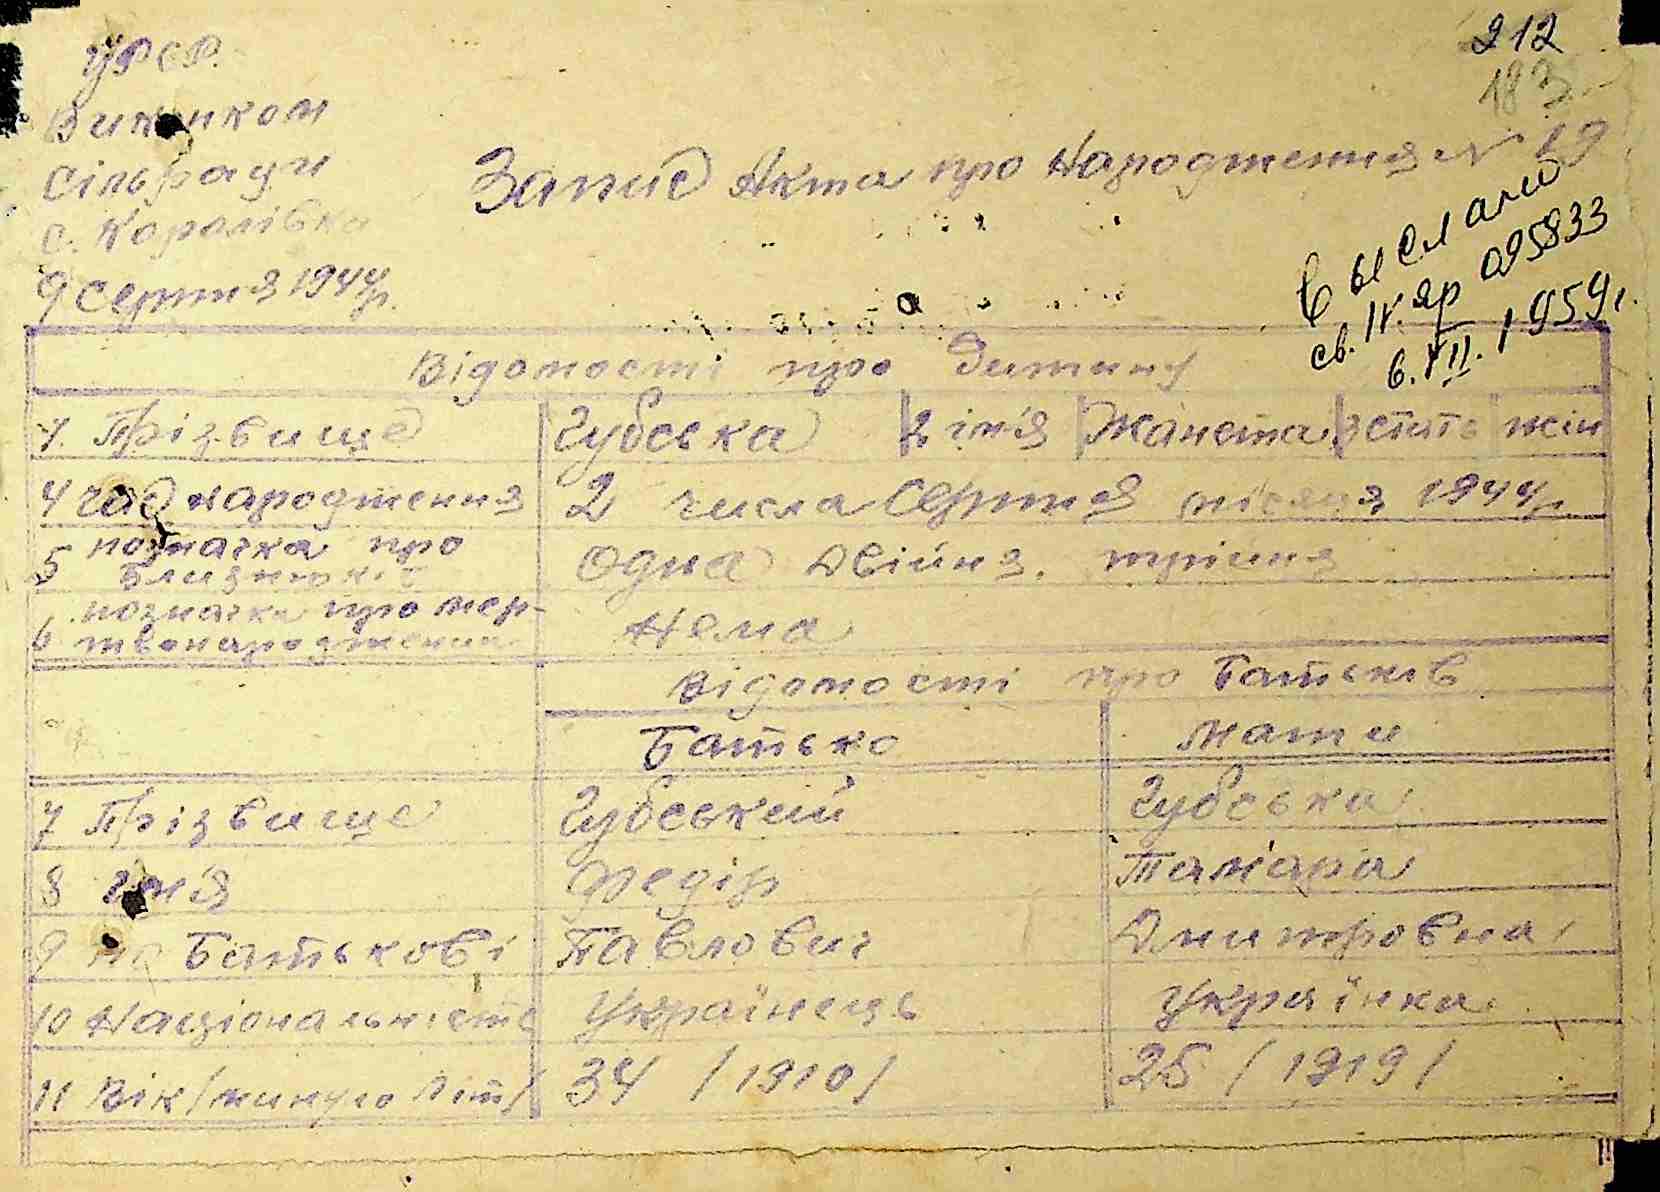 212
183
УРСР.
Виконком
Сільради
с. Королівка
9 Серпня 1944р.
Запис Акта про Народження № 19
Выслали
св. IV. яр 095833
6. VII. 1959г.
Відомості про Дитину
1. Прізвище Губська 2 ім'я Жанета 3 стать жін
4 час народження 2 числа Серпня місяця 1944р.
5 позначка про близнюків одна двійня. трійня
6 позначка про мер-
твонародження Нема
Відомості про Батьків
Батько Мати
7 Прізвище Губський Губська
8 ім'я Федір Тамара
9 по Батькові Павлович Дмитровна
10 Національність Українець Українка
11 Вік /минуло літ/ 34 /1910/ 25 /1919/